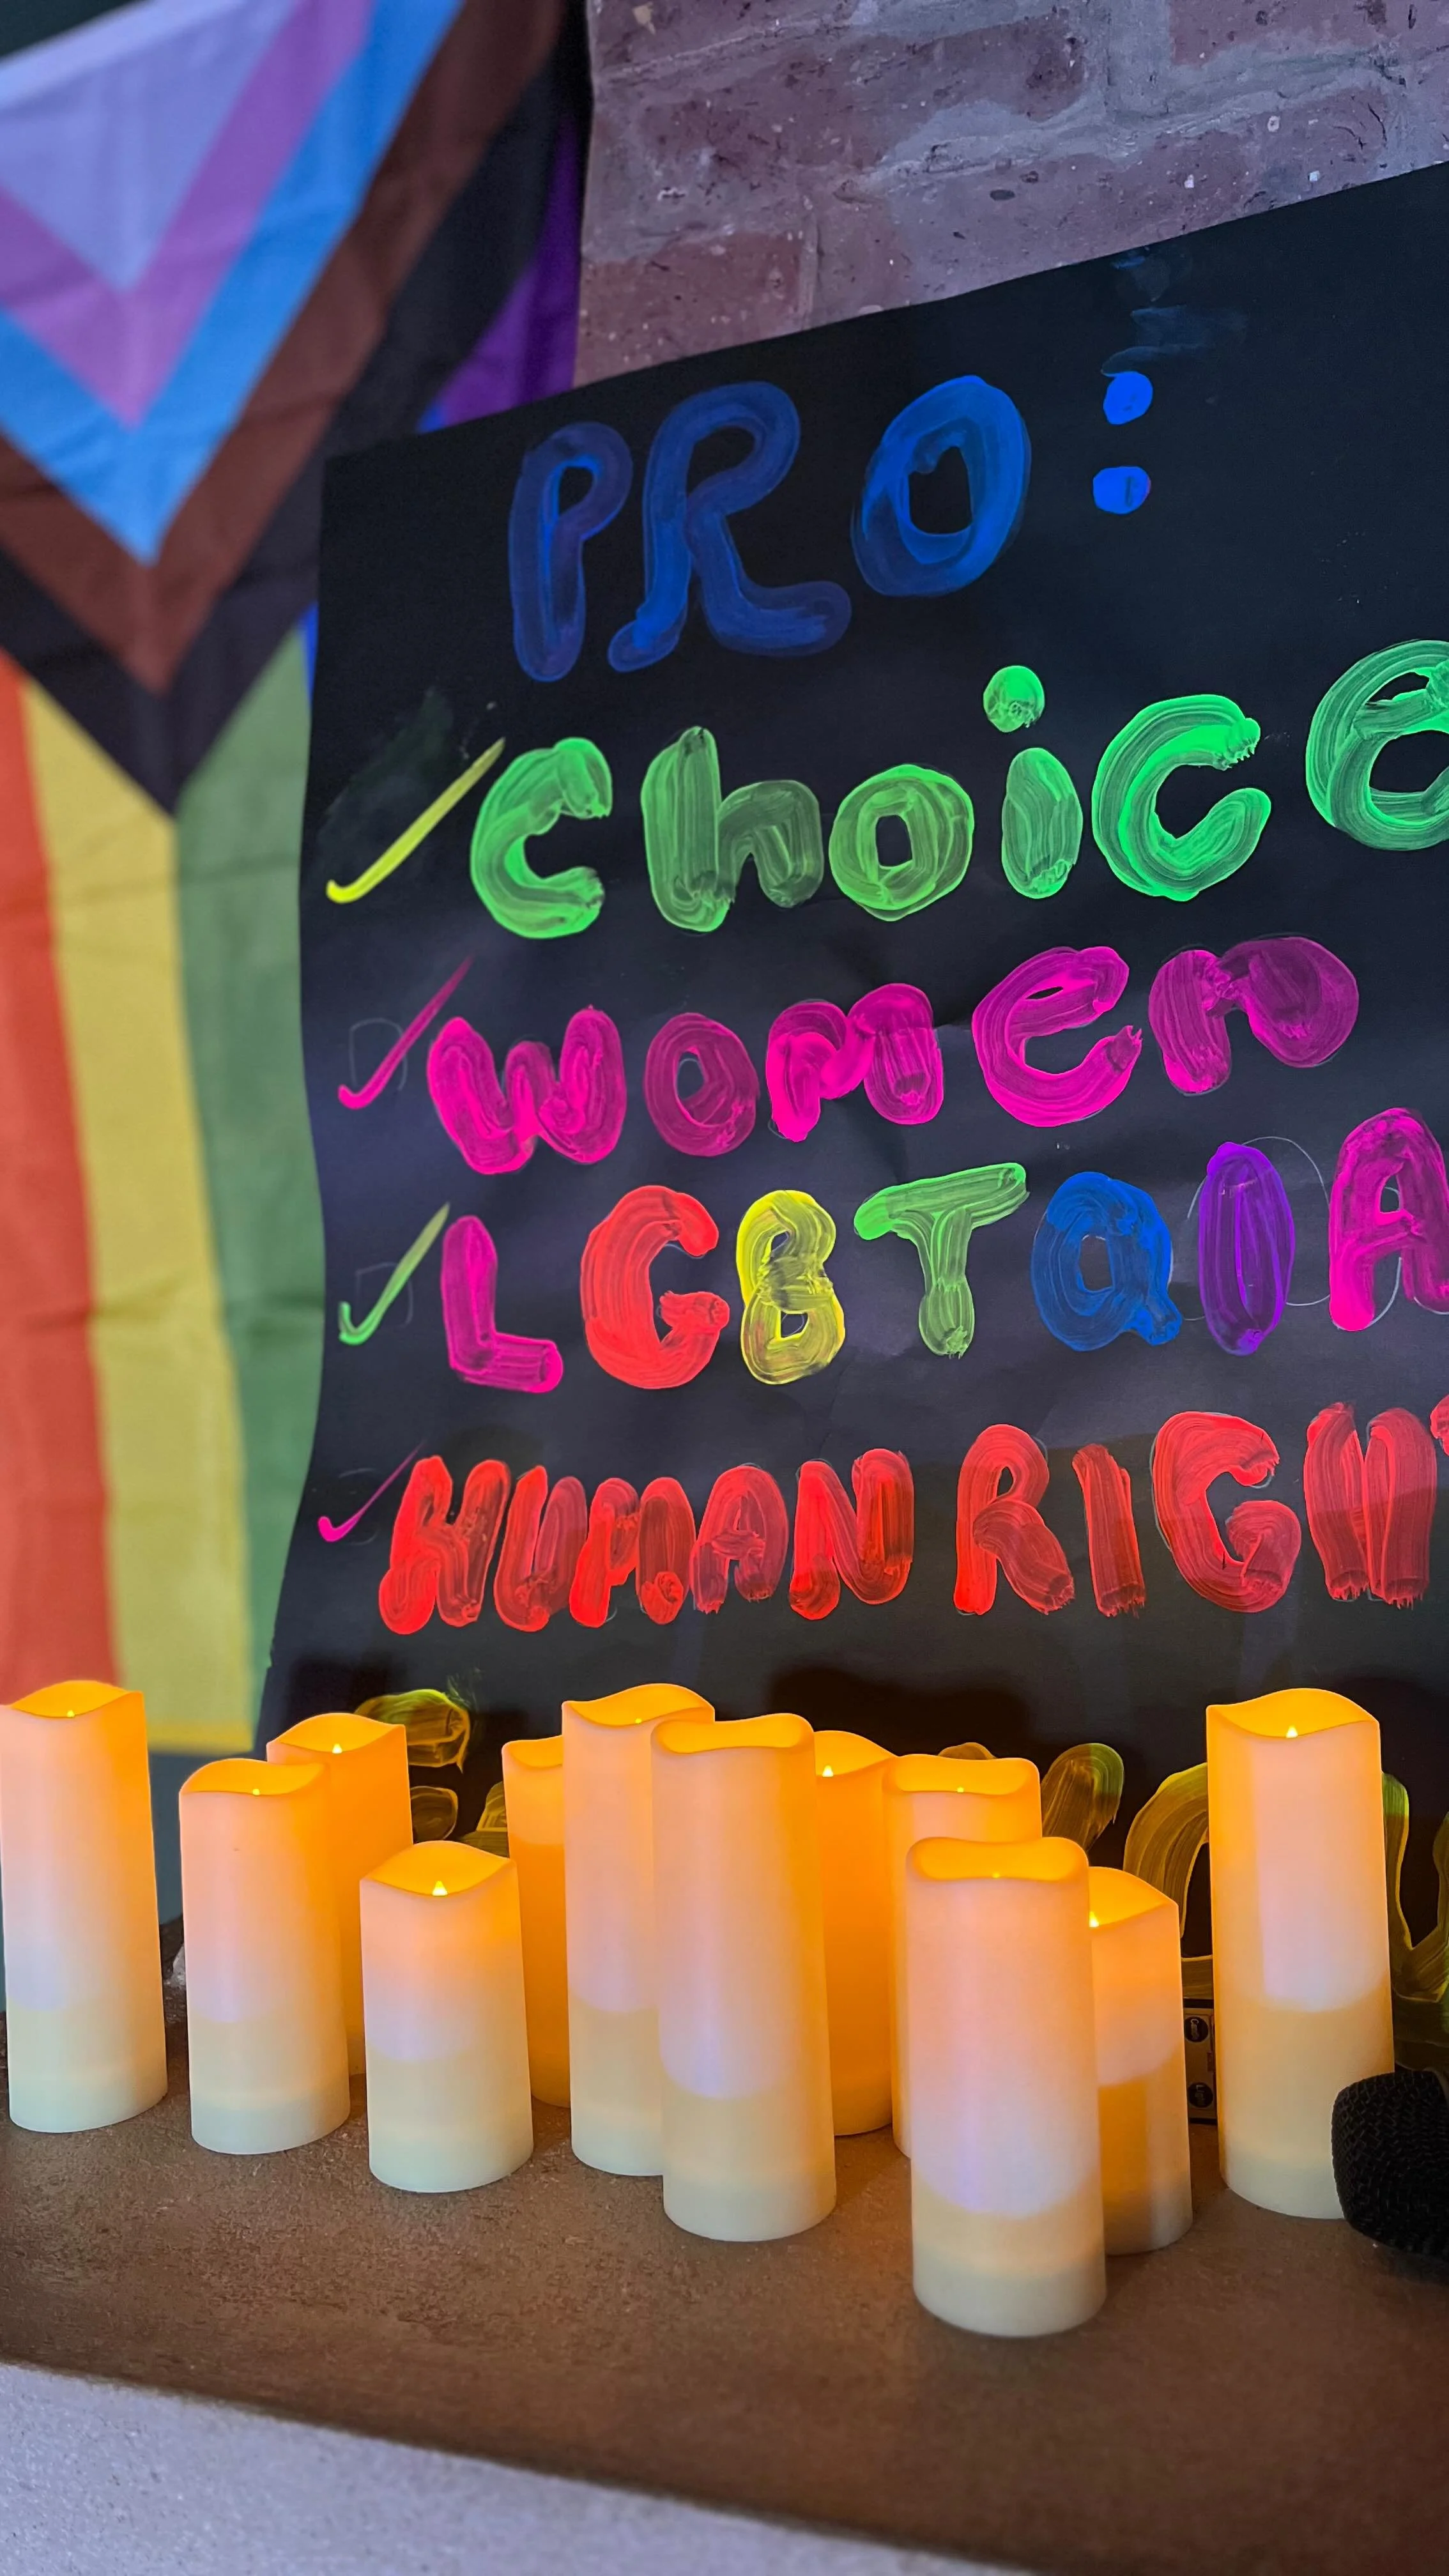 PRO:
✓ choice
✓ women
✓ LGBTQIA
✓ HUMAN RIGHT